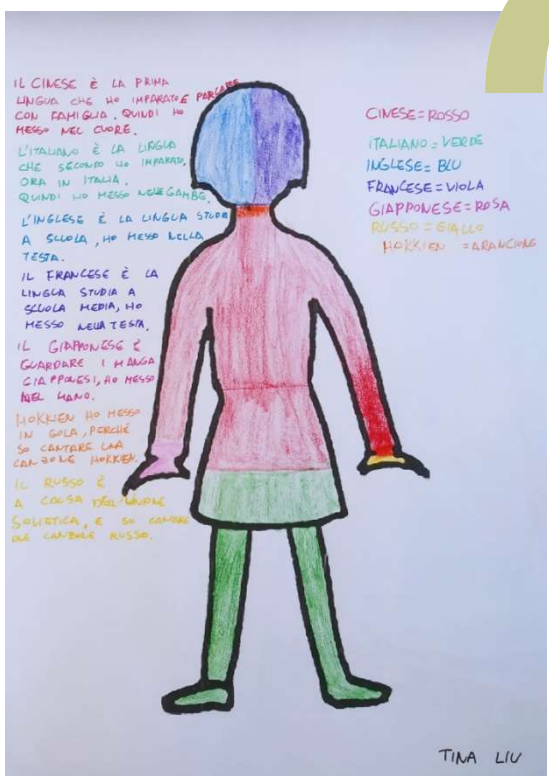 IL CINESE È LA PRIMA
LINGUA CHE HO IMPARATO E PARLARE
CON FAMIGLIA. QUINDI HO
MESSO NEL CUORE.
L'ITALIANO È LA LINGUA
CHE SECONDO HO IMPARATO,
ORA IN ITALIA.
QUINDI HO MESSO NELLE GAMBE.
L'INGLESE È LA LINGUA STUDIA
A SCUOLA, HO MESSO NELLA
TESTA.
IL FRANCESE È LA
LINGUA STUDIA A
SCUOLA MEDIA, HO
MESSO NELLA TESTA.
IL GIAPPONESE È
GUARDARE I MANGA
GIAPPONESI, HO MESSO
NEL MANO.
HOKKIEN HO MESSO
IN GOLA, PERCHÉ
SO CANTARE UNA
CANZONE HOKKIEN.
IL RUSSO È
A CAUSA DELL'UNIONE
SOVIETICA, E SO CANTARE
CANZONE RUSSO.
CINESE = ROSSO
ITALIANO = VERDE
INGLESE = BLU
FRANCESE = VIOLA
GIAPPONESE = ROSA
RUSSO = GIALLO
HOKKIEN = ARANCIONE
TINA LIU